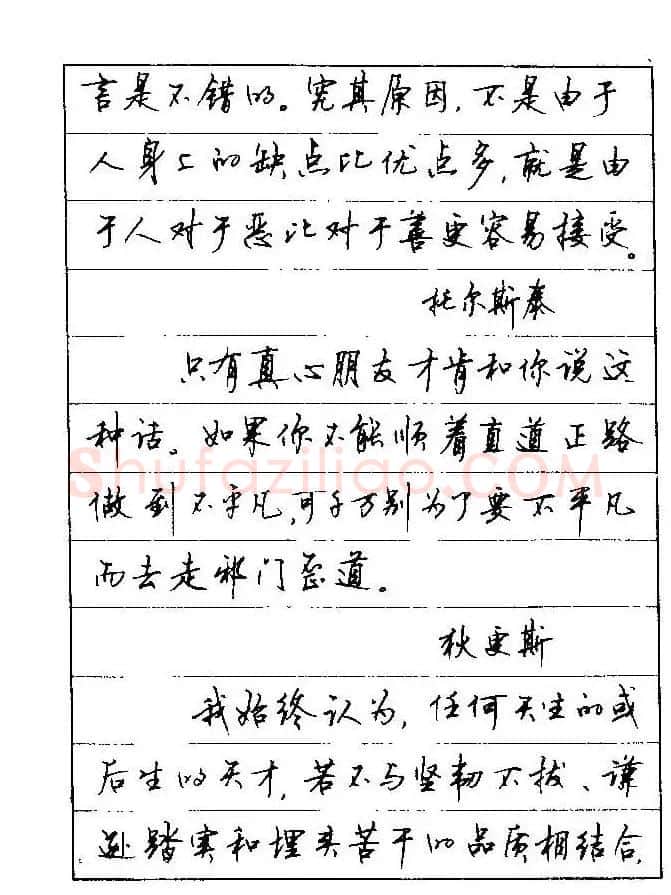 言是不错的。究其原因，不是由于
人身上的缺点比优点多，就是由
于人对于恶比对于善更容易接受。
托尔斯泰
只有真心朋友才肯和你说这
种话。如果你不能顺着直道正路
Shufaziliao.COM
做到不平凡，可千万别为了要不平凡
而去走邪门歪道。
狄更斯
我始终认为，任何天生的或
后生的天才，若不与坚韧不拔、谦
逊踏实和埋头苦干的品质相结合，